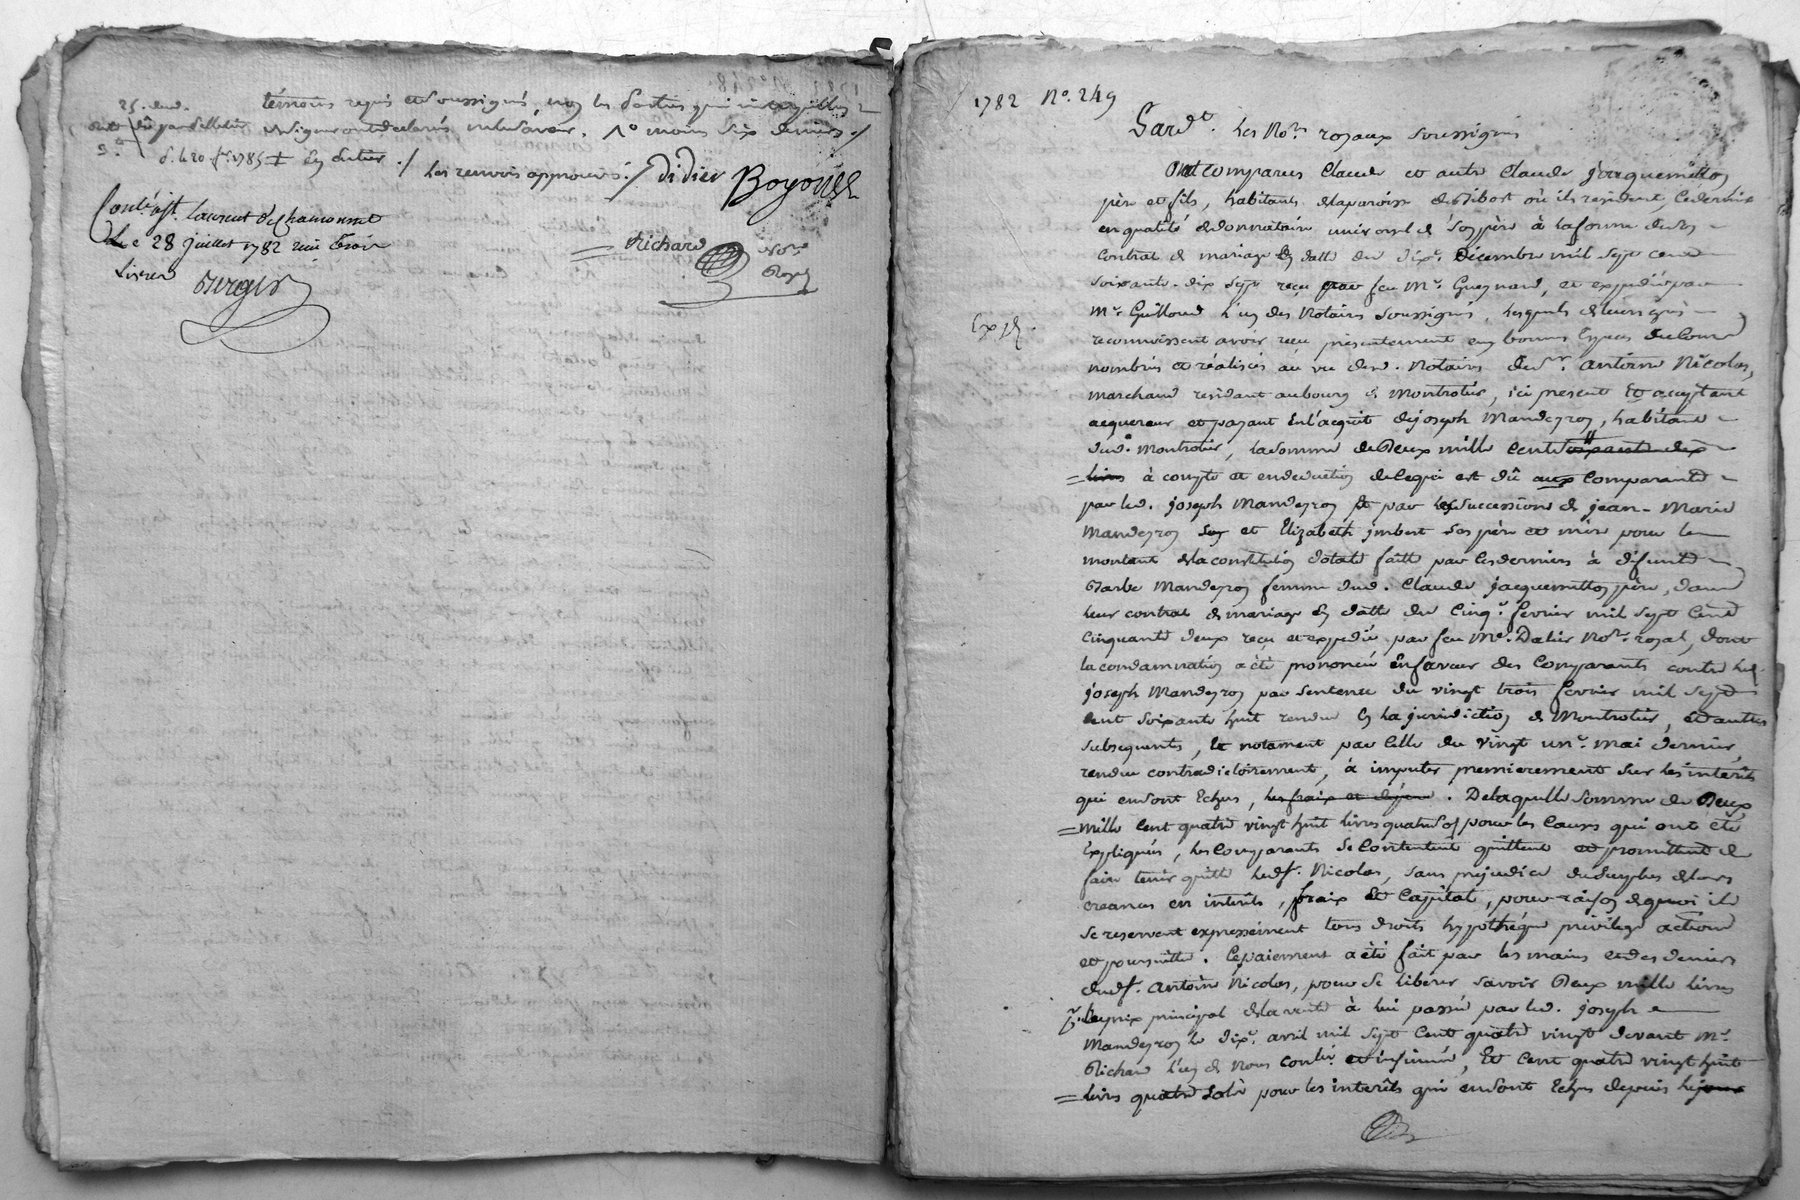 témoins requis et soussignés, non les parties qui
ont déclarés ne le savoir.
Les renvois approuvés ./ Didier Boyoud
Richard Nore
Royal
Contr. à St. Laurent de Chamousset
Le 28 juillet 1782 reçu trois
Livres Berger
1782 No. 249
Pard.t Les No.res royaux soussignés
Ont comparus Claude et autre Claude jacquemetton
père et fils, habitants de la paroisse où ils resident, ce dernier
en qualité de donnataire universel de son père à la forme de son
contrat de mariage en datte du dix.e Décembre mil sept cent
soixante-dix sept reçu par feu M.e Guignard, et expedié par
M.e Guilloud l'un des Notaires soussignés, lesquels de leurs grés
Exp.é
reconnoissent avoir reçu presentement en bonnes Espèces de cours
nombrés et réalisés au vu desd. Notaires de S.r antoine Nicolas,
marchand residant au bourg de Montrotier, ici present et acceptant
acquereur et payant En l'acquit de joseph Mandeyron, habitant
dud. Montrotier, la somme de Deux mille cent soixante dix
livres à compte et en deduction de ce qui est dû aux Comparants
par led. joseph Mandeyron et par les successions de jean-Marie
Mandeyron et Elizabeth jmbert ses père et mère pour le
montant de la constitution dotale faitte par ces derniers à defunte
Barbe Mandeyron femme dud. Claude jacquemetton père, dans
leur contrat de mariage en datte du cinq.e fevrier mil sept Cent
Cinquante deux reçu et expedié par feu M.e Dalier No.re royal, dont
la condamnation a été prononcée en faveur des Comparants contre led.
joseph Mandeyron par sentence du vingt trois fevrier mil sept
cent soixante huit rendue en la jurisdiction de Montrotier, et autres
subsequents, et notament par celle du vingt un.e mai dernier,
rendue contradictoirement, à imputer premierement sur les interêts
qui en sont Echus, les fraix et dépens. De laquelle somme de Deux
mille cent quatre vingt huit livres quatre sols pour les causes qui ont été
Expliquées, les Comparants se contentent quittent et promettent de
faire tenir quitte led. S.r Nicolas, sans prejudice du surplus de leurs
creances en interêts, fraix et Capital, pour raison de quoi ils
se reservent expressement tous droits hypothéque privilége action
et poursuitte. Ce paiement a été fait par les mains et des deniers
dud. S.r antoine Nicolas, pour se liberer savoir Deux mille livres
Le prix principal de la vente à lui passée par led. joseph
Mandeyron le dix.e avril mil sept Cent quatre vingt devant M.e
Richard l'un de Nous Contlé et insinué, Et Cent quatre vingt huit
livres quatre sols pour les interêts qui en sont Echus depuis le jour